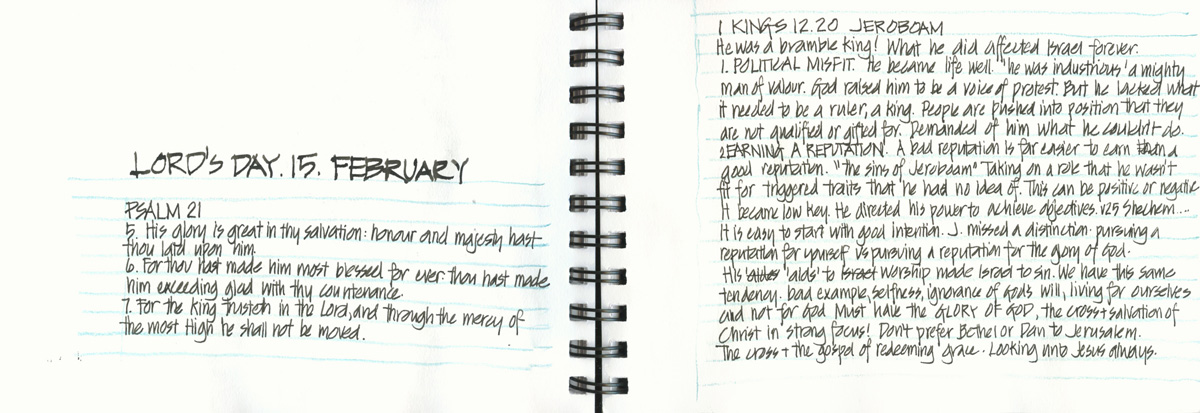 LORD'S DAY. 15. FEBRUARY
PSALM 21
5. His glory is great in thy salvation: honour and majesty hast
thou laid upon him.
6. For thou hast made him most blessed for ever: thou hast made
him exceeding glad with thy countenance.
7. For the king trusteth in the Lord, and through the mercy of
the most High he shall not be moved.
1 KINGS 12.20 JEROBOAM
He was a bramble king! What he did affected Israel forever.
1. POLITICAL MISFIT. He became life well. "he was industrious' a mighty
man of valour. God raised him to be a voice of protest. But he lacked what
it needed to be a ruler, a king. People are pushed into position that they
are not qualified or gifted for. Demanded of him what he couldn't do.
2 EARNING A REPUTATION. A bad reputation is far easier to earn than a
good reputation. "The sins of Jeroboam" Taking on a role that he wasn't
fit for triggered traits that he had no idea of. This can be positive or negative
It became low key. He directed his power to achieve objectives. v25 Shechem....
It is easy to start with good intention. J. missed a distinction: pursuing a
reputation for yourself vs pursuing a reputation for the glory of God.
His 'aids' to Israel worship made Israel to sin. We have this same
tendency. bad example, selfness, ignorance of God's will, living for ourselves
and not for God Must have the GLORY OF GOD, the cross + salvation of
Christ in strong focus! Don't prefer Bethel or Dan to Jerusalem.
The cross + the gospel of redeeming grace. Looking unto Jesus always.